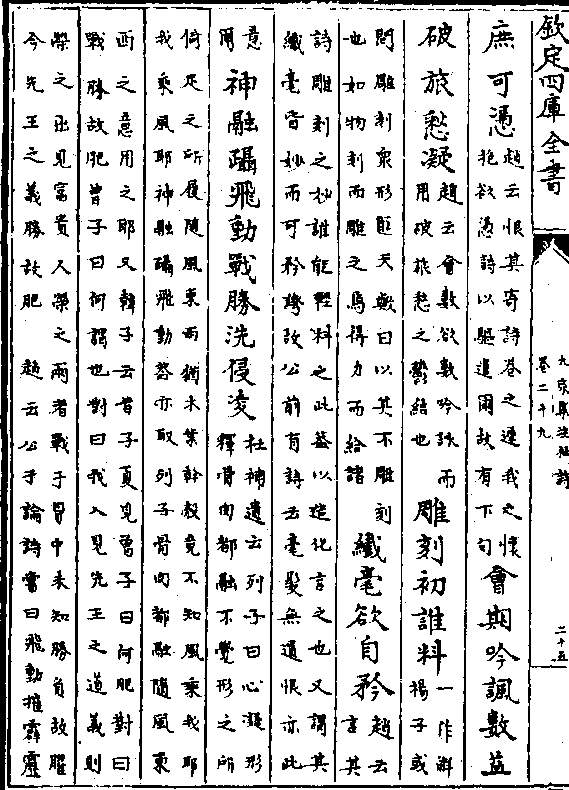 欽定四庫全書
九家集注杜詩
卷二十九
二十五
庶可憑
趙云恨其寄詩卷之遲我之懷
抱欲憑詩以驅遣爾故有下句
會期吟諷數益
破旅愁凝
趙云會數欲數吟詠而
用破旅愁之鬱結也
雕刻初誰料
一作料
揚子或
問雕刻衆形匪天歟曰以其不雕刻
也如物刻而雕之焉得力而給諸
纖毫欲自矜
趙云
言其
詩雕刻之妙誰能輕料之此蓋以造化言之也又謂其
纖毫皆妙而可矜誇故公前有詩云毫髮無遺恨亦此
意
爾
神融躡飛動戰勝洗侵凌
杜補遺云列子曰心凝形
釋骨肉都融不覺形之所
倚足之所履隨風東西猶木葉幹殼竟不知風乘我耶
我乘風耶神融躡飛動蓋亦取列子骨肉都融隨風東
西之意用之耶又韓子云昔子夏見曾子曰何肥對曰
戰勝故肥曾子曰何謂也對曰我入見先王之道義則
榮之出見富貴又榮之兩者戰于胷中未知勝負故臞
今先王之義勝故肥 趙云公于論詩嘗曰飛動摧霹靂